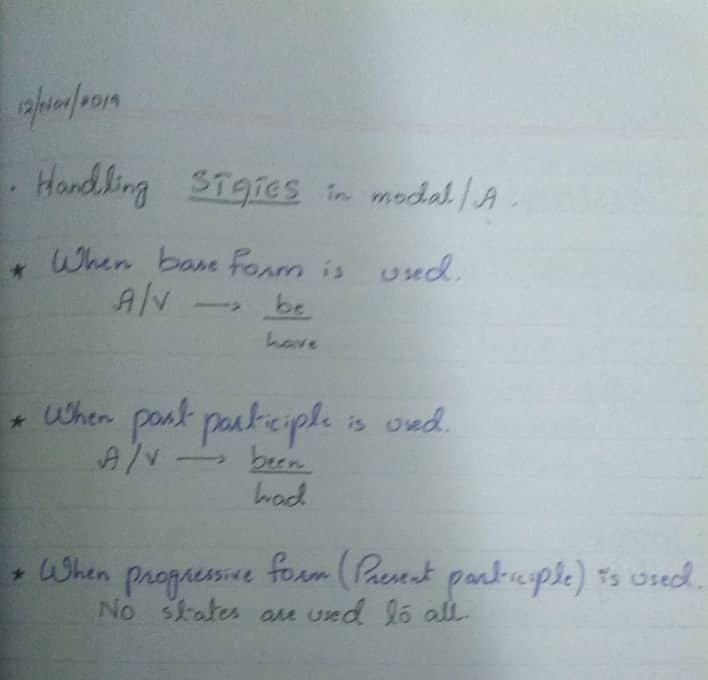 12/Nov/2019
. Handling STATES in modal/A.
* When base form is used.
A/V → be
have
* When past participle is used.
A/V → been
had
* When progressive form (Present participle) is used.
No states are used to all.